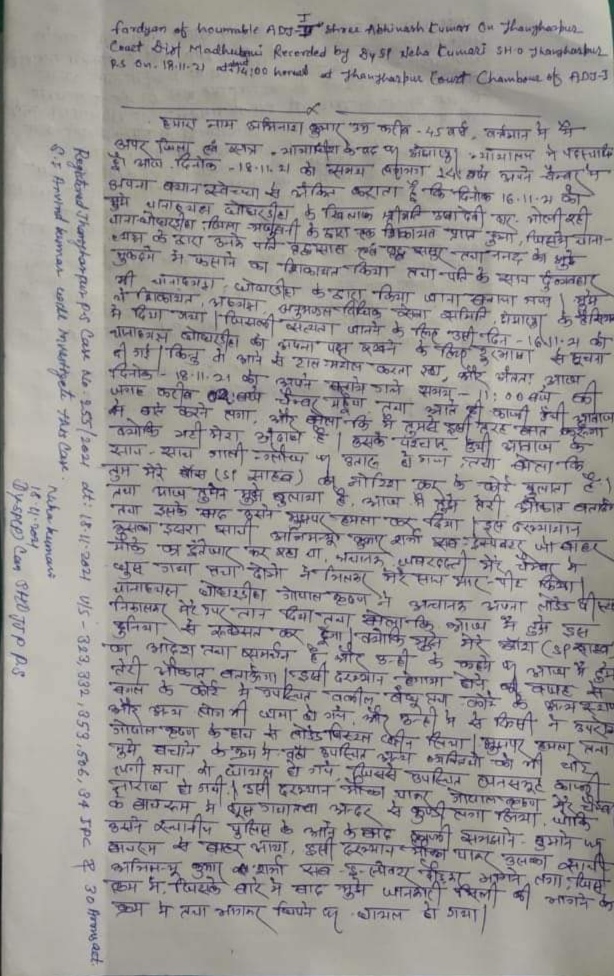 I
fardyan of hounrable ADJ-I Shree Abhinash Kumar On Jhangharpur
Court Dist Madhubani Recorded by DySP Neha Kumari SHO Jhangharpur
PS On. 18-11-21 at 14:00 hours at Jhangharpur Court Chambour of ADJ-I
हमारा नाम अविनाश कुमार उम्र करीब - 45 वर्ष, वर्तमान में मैं
अपर जिला एवं सत्र न्यायाधीश के पद पर झंझारपुर न्यायालय में पदस्थापित
हूँ। आज दिनांक - 18.11.21 को समय अपने चैम्बर में
अपना बयान स्वेच्छा से अंकित कराता हूँ कि दिनांक 16.11.21 को
मुझे थानाध्यक्ष घोघरडीहा के खिलाफ श्रीमति उषा देवी
थाना घोघरडीहा जिला मधुबनी के द्वारा एक शिकायत प्राप्त हुआ, जिसमें थाना-
ध्यक्ष के द्वारा उनके पति वृद्ध सास एवं वृद्ध ससुर तथा ननद को झूठे
मुकदमे में फंसाने का शिकायत किया तथा पति के साथ दुर्व्यवहार
भी थानाध्यक्ष घोघरडीहा के द्वारा किया जाना बताया गया। मुझे
ये शिकायत, अध्यक्ष, अनुमण्डल विधिक सेवा समिति झंझारपुर के हैसियत
से दिया गया। जिसकी सत्यता जानने के लिए उसी दिन - 16.11.21 को
थानाध्यक्ष घोघरडीहा को अपना पक्ष रखने के लिए से सूचना
दी गई। किन्तु वो आने से टाल मटोल करता रहा, और अंततः आज
दिनांक - 18.11.21 को अपने बुलाये गये समय - 11:00 बजे की
जगह करीब 02 बजे चैम्बर पहुंचा तथा आते ही काफी ऊँची आवाज
में बात करने लगा, और बोला कि मैं तुमसे इसी तरह बात करूंगा
क्योंकि यही मेरा अंदाज है। इसके पश्चात् ऊँची आवाज के
साथ - साथ गाली - गलौज पर उतारू हो गया, तथा बोला कि
तुम मेरे बॉस (SP साहब) को नोटिस कर के कोर्ट बुलाता है।
तथा आज तुमने मुझे बुलाया है, आज मैं तुम्हें तेरी औकात बताऊंगा
तथा इसके बाद उसने मुझपर हमला कर दिया। इस दरम्यान
इसका दूसरा साथी अभिमन्यु कुमार शर्मा सब - इंस्पेक्टर जो बाहर
मौके का इंतेजार कर रहा था, अचानक जबरदस्ती मेरे चैम्बर में
घुस गया तथा दोनों ने मिलकर मेरे साथ मार - पीट किया।
थानाध्यक्ष घोघरडीहा गोपाल कृष्ण ने अचानक अपना लोडेड पिस्टल
निकालकर मेरे उपर तान दिया तथा बोला कि आज मैं तुम्हें इस
दुनिया से रूखसत कर दूंगा। क्योंकि मुझे मेरे बॉस (SP साहब)
का आदेश तथा समर्थन है और उन्हीं के कहने पर आज मैं तुम्हें
तेरी औकात बताऊंगा। इसी दरम्यान हंगामा होने की वजह से
बगल के कोर्ट में उपस्थित वकील, बंधु तथा कोर्ट के अन्य स्टाफ
और अन्य लोग भी जमा हो गये, और उन्हीं में से किसी ने उपरोक्त
गोपाल कृष्ण के हाथ से लोडेड पिस्टल छीन लिया। मुझपर हमला तथा
मुझे बचाने के क्रम में वहाँ उपस्थित अन्य व्यक्तियों को भी चोटें
लगी तथा वो घायल हो गये, जिससे उपस्थित जनसमूह काफी
नाराज हो गयी। इसी दरम्यान मौका पाकर गोपाल कृष्ण मेरे चैम्बर
के बाथरूम में घुस गया तथा अन्दर से कुण्डी लगा लिया, जोकि
उसने स्थानीय पुलिस के आने के बाद काफी समझाने - बुझाने पर
बाथरूम से बाहर आया, इसी दरम्यान मौका पाकर उसका साथी
अभिमन्यु कुमार शर्मा सब - इंस्पेक्टर भागने लगा, जिसके
क्रम में, जिसके बारे में बाद मुझे जानकारी मिली की भागने के
क्रम में तथा भागकर छिपने पर घायल हो गया।
Registered Jhangharpur P.S Case No. 255/2021 dt: 18.11.2021 U/S - 323, 332, 353, 506, 34 IPC & 30 Arms act.
S.I Arvind kumar will Investigate This Case.
Neha kumari
18.11.2021
DySP(U) Cum SHO JJP PS